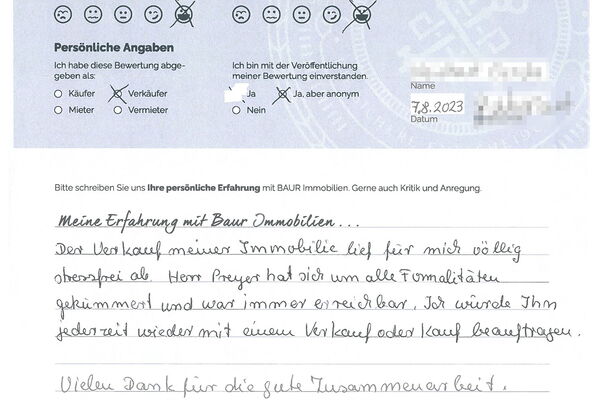 Persönliche Angaben
Ich habe diese Bewertung abge-
geben als:
Käufer
Verkäufer
Mieter
Vermieter
Ich bin mit der Veröffentlichung
meiner Bewertung einverstanden.
Ja
Ja, aber anonym
Nein
Name
7.8.2023
Datum
Bitte schreiben Sie uns Ihre persönliche Erfahrung mit BAUR Immobilien. Gerne auch Kritik und Anregung.
Meine Erfahrung mit Baur Immobilien...
Der Verkauf meiner Immobilie lief für mich völlig
stressfrei ab. Herr Preyer hat sich um alle Formalitäten
gekümmert und war immer erreichbar. Ich würde Ihn
jederzeit wieder mit einem Verkauf oder Kauf beauftragen.
Vielen Dank für die gute Zusammenarbeit.